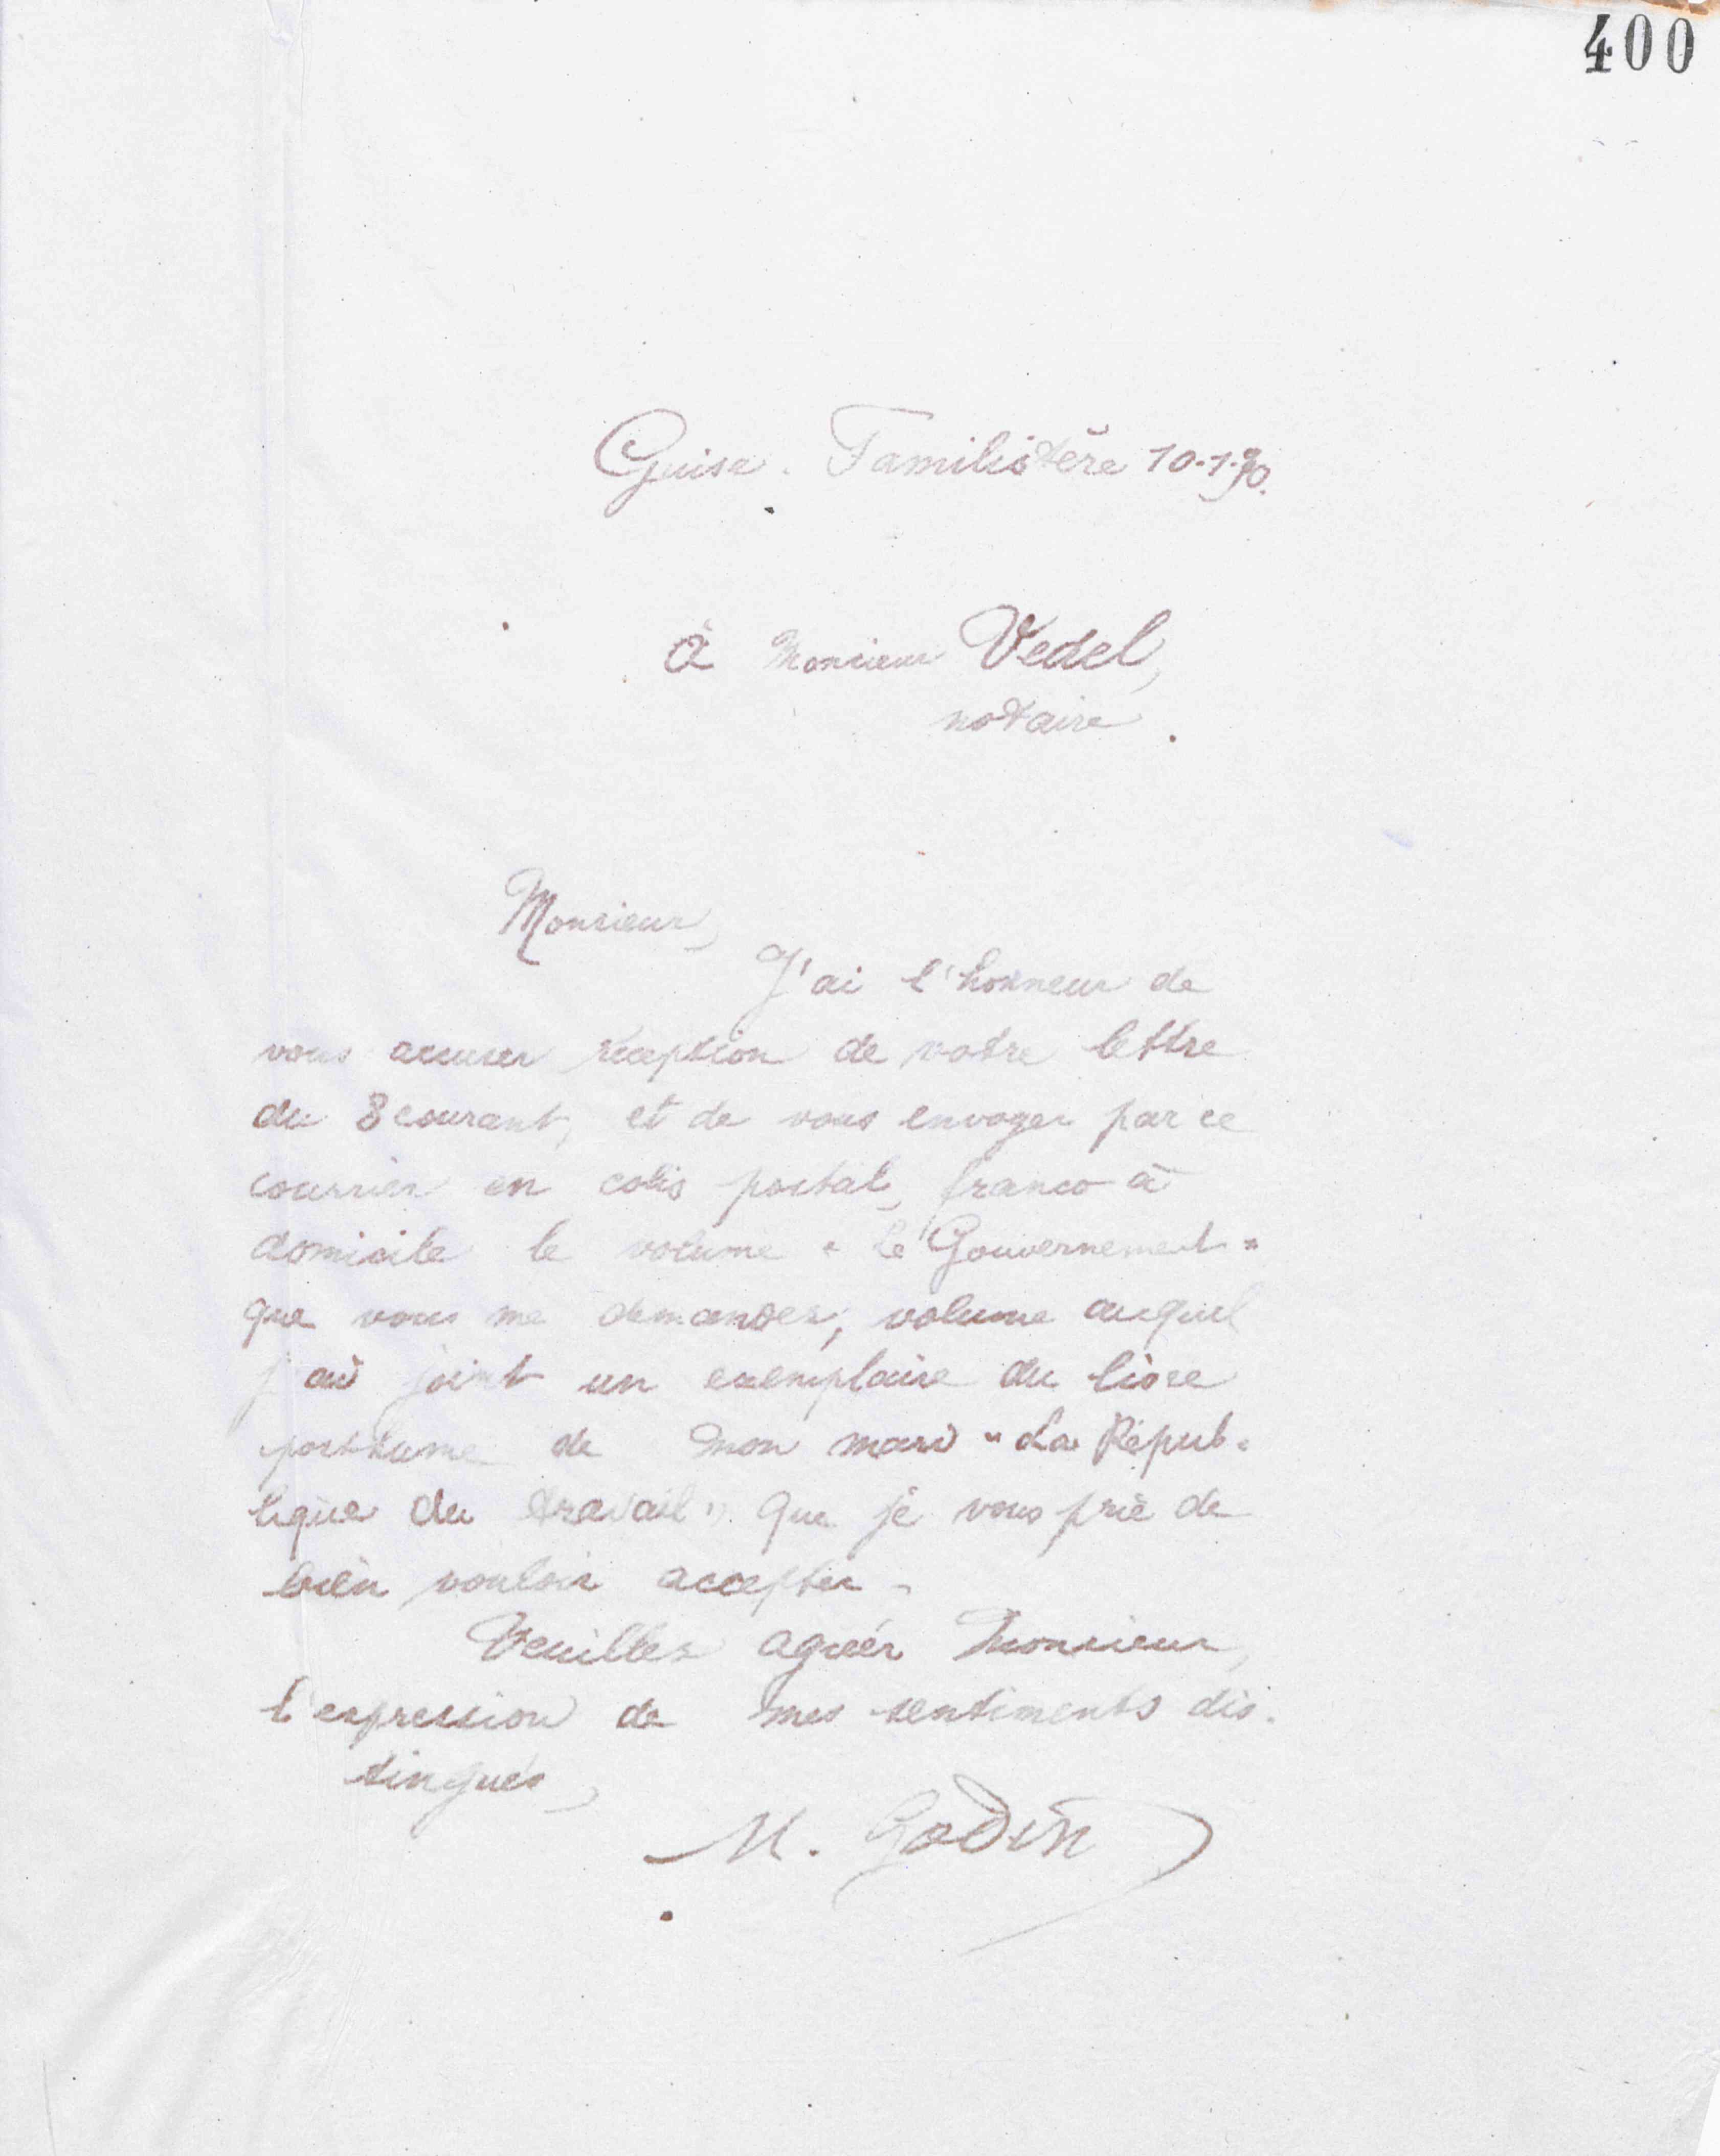 400
Guise. Familistère 10-1-90.
à Monsieur Vedel,
notaire.
Monsieur,
J'ai l'honneur de
vous accuser réception de votre lettre
du 8 courant, et de vous envoyer par ce
courrier en colis postal, franco à
domicile le volume « Le Gouvernement »
que vous me demandez, volume auquel
j'ai joint un exemplaire du livre
posthume de mon mari « La Répub-
lique du travail » que je vous prie de
bien vouloir accepter.
Veuillez agréer Monsieur,
l'expression de mes sentiments dis-
tingués,
M. Godin